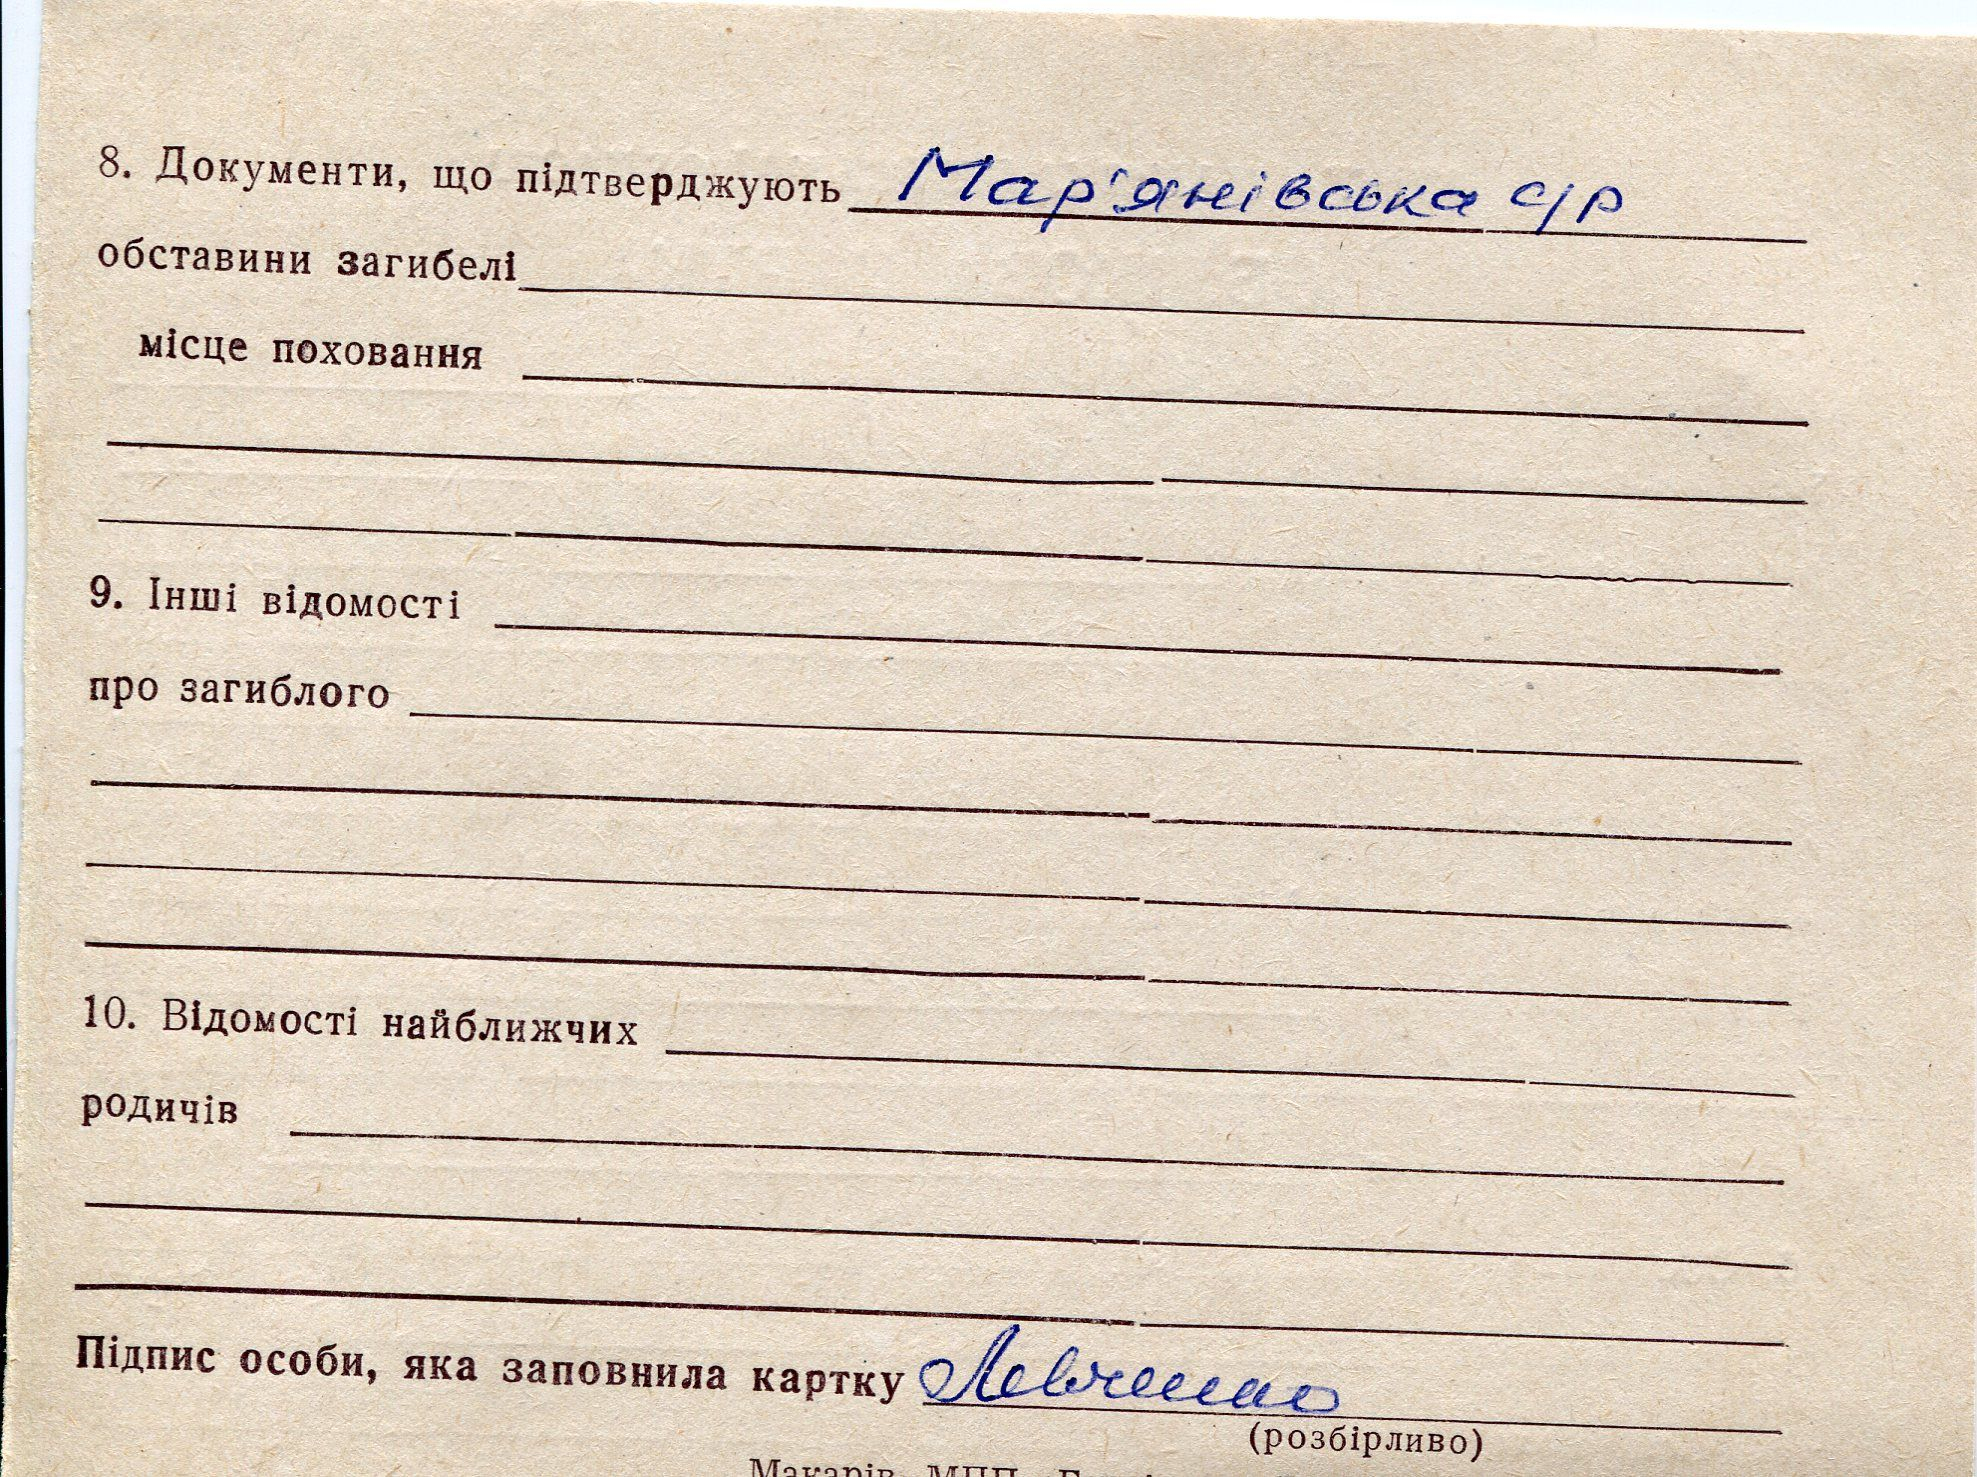 8. Документи, що підтверджують Мар'янівська с/р
обставини загибелі
місце поховання
9. Інші відомості
про загиблого
10. Відомості найближчих
родичів
Підпис особи, яка заповнила картку Левченко
(розбірливо)
Макарів МПП